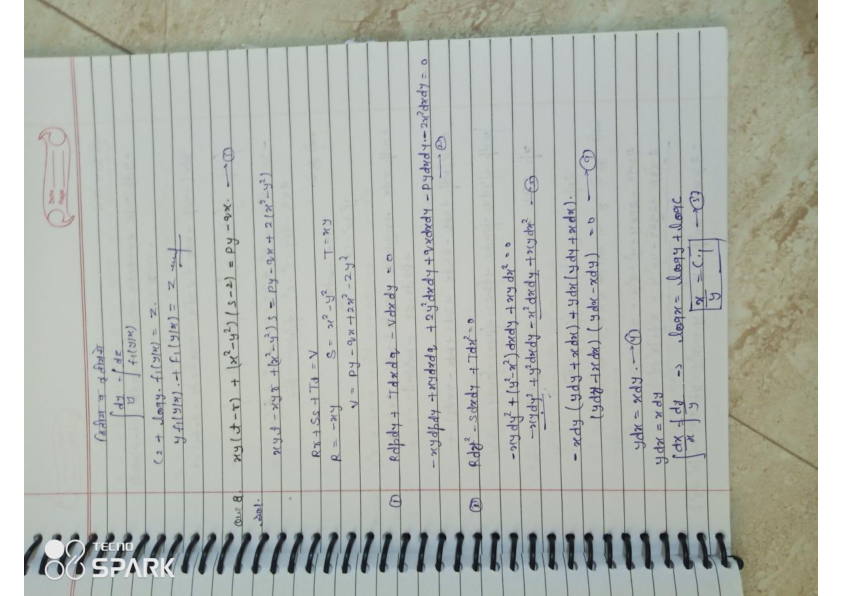 द्वितीय व तृतीय से
∫dy/y = ∫dz/f₁(y/x)
C₂ + log y. f₁(y/x) = z.
y f₁(y/x) + F₁(y/x) = z
Que 8. xy(t-r) + (x²-y²)(s-2) = py-qx. —①
Sol.
xyt - xyr + (x²-y²)s = py-qx+2(x²-y²)
Rr + Ss + Tt = V
R = -xy S = x²-y² T = xy
V = py - qx + 2x² - 2y²
① Rdpdy + Tdxdq - Vdxdy = 0
-xydpdy + xydxdq + 2y²dxdy + qxdxdy - pydxdy - 2x²dxdy = 0
—②
② Rdy² - sdxdy + Tdx² = 0
-xydy² + (y²-x²)dxdy + xydx² = 0
-xydy² + y²dxdy - x²dxdy + xydx² —③
-xdy(ydy + xdx) + ydx(ydy + xdx).
(ydy + xdx)(ydx - xdy) = 0 —④
ydx = xdy. —④
ydx = xdy
∫dx/x = ∫dy/y → log x = log y + log c
x/y = C₁ —⑤
Date
Page
TECNO
SPARK